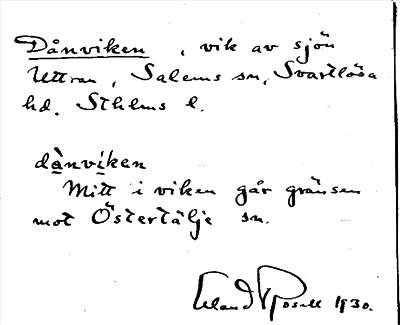 Dånviken, vik av sjön
Uttran, Salems sn, Svartlösa
hd. Sthlms l.
dånviken
Mitt i viken går gränsen
mot Östertälje sn.
Erland Rosell 1930.